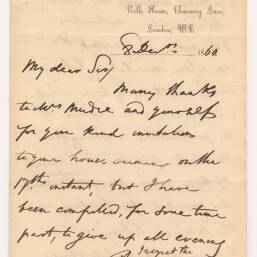 Rolls House, Chancery Lane,
London, W.C.
8 Decr. 1860.
My dear Sir,
Many thanks
to Mrs Mudie and yourself
for your kind invitation
to your house on the
17th instant, but I have
been compelled, for some time
past, to give up all evening
I regret the